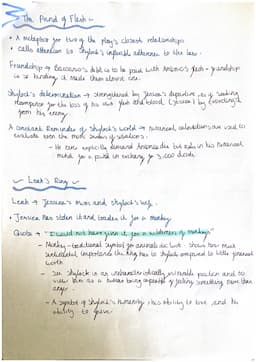 The Pound of Flesh
• A metaphor for two of the play's closest relationships
• Calls attention to Shylock's inflexible adherence to the law.
Friendship → Bassanio's debt is to be paid with Antonio's flesh - friendship
is so binding it made them almost one.
Shylock's determination → strengthened by Jessica's departure, seeking
recompense for the loss of his own flesh and blood (Jessica) by
from his enemy.
A constant Reminder of Shylock's world → numerical calculations are used to
evaluate even the most serious of situations.
- He never explicitly demands Antonio die but asks in his numerical
mind for a pound in exchange for 3,000 ducats.
Leah's Ring
Leah → Jessica's mum and Shylock's wife.
• Jessica has stolen it and trades it for a monkey
Quote → "I would not have given it for a wilderness of monkeys"
- Monkey - traditional symbol for animalistic lust - shows how much
sentimental importance the ring has to Shylock compared to little general
worth.
- See Shylock in an uncharacteristically vulnerable position and to
view him as a human being capable of feeling something more than
anger.
- A symbol of Shylock's humanity, his ability to love, and his
ability to grieve.